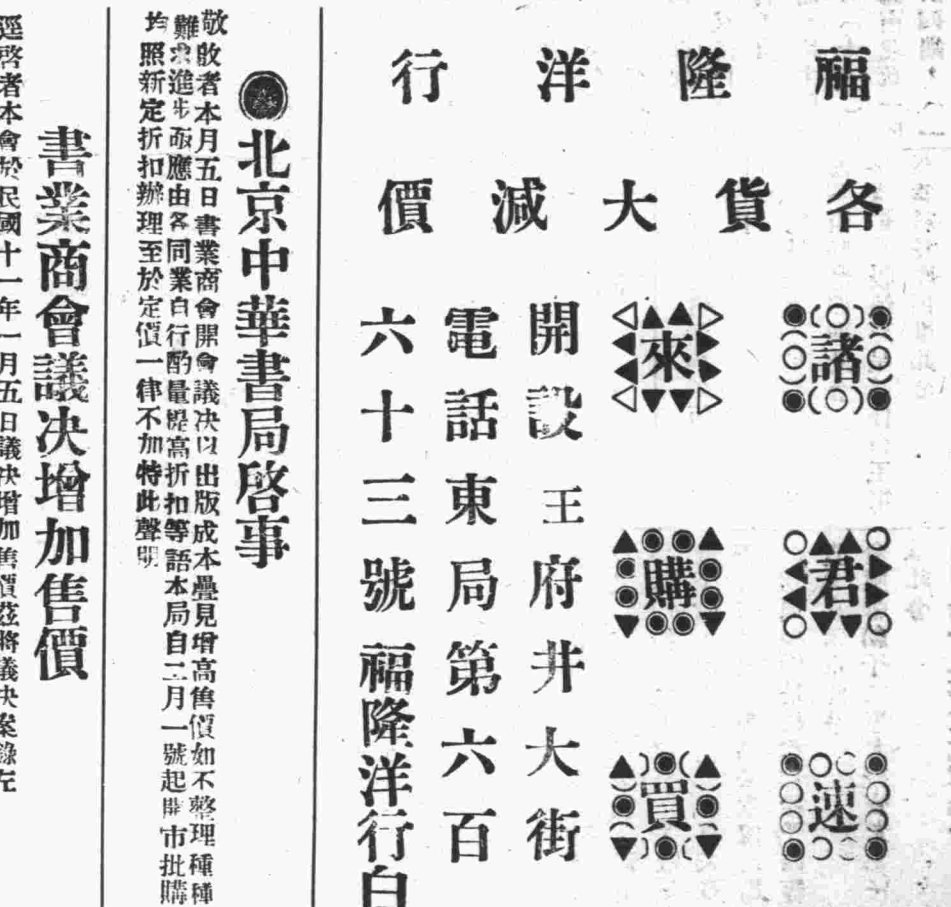 福隆洋行
各貨大減價
諸君速
來購買
開設王府井大街
電話東局第六百
六十三號福隆洋行白
北京中華書局啓事
敬啟者本月五日書業商會開會議决以出版成本疊見增高售價如不整理種種
難求進步亟應由各同業自行酌量提高折扣等語本局自二月一號起開市批購
均照新定折扣辦理至於定價一律不加特此聲明
書業商會議决增加售價
逕啓者本會於民國十一年一月五日議决增加售價茲將議决案錄左